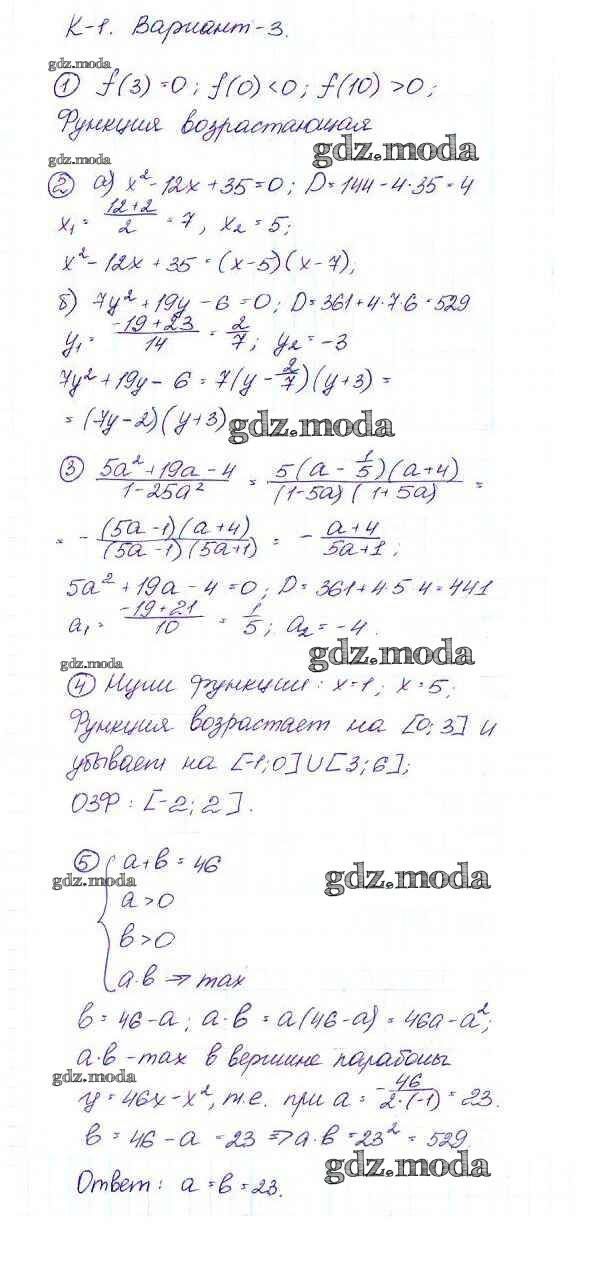 К-1. Вариант-3.
gdz.moda
① f(3)=0; f(0)<0; f(10)>0;
Функция возрастающая
gdz.moda
② а) x²-12x+35=0; D=144-4·35=4
x₁= (12+2)/2 =7, x₂=5;
x²-12x+35=(x-5)(x-7);
б) 7y²+19y-6=0; D=361+4·7·6=529
y₁= (-19+23)/14 = 2/7; y₂=-3
7y²+19y-6=7(y-2/7)(y+3)=
=(7y-2)(y+3)
gdz.moda
③ (5a²+19a-4)/(1-25a²) = 5(a-1/5)(a+4)/((1-5a)(1+5a)) =
= -(5a-1)(a+4)/((5a-1)(5a+1)) = -(a+4)/(5a+1);
5a²+19a-4=0; D=361+4·5·4=441
a₁= (-19+21)/10 = 1/5; a₂=-4.
gdz.moda
gdz.moda
④ Нули функции: x=1; x=5;
Функция возрастает на [0;3] и
убывает на [-1;0]∪[3;6];
ОЗФ: [-2;2].
⑤ { a+b=46
gdz.moda
gdz.moda
a>0
b>0
a·b ⇒ max
b=46-a; a·b=a(46-a)=46a-a²;
a·b-max в вершине параболы
gdz.moda
y=46x-x², т.е. при a= -46/(2·(-1)) =23.
b=46-a=23 ⇒ a·b=23²=529.
gdz.moda
Ответ: a=b=23.